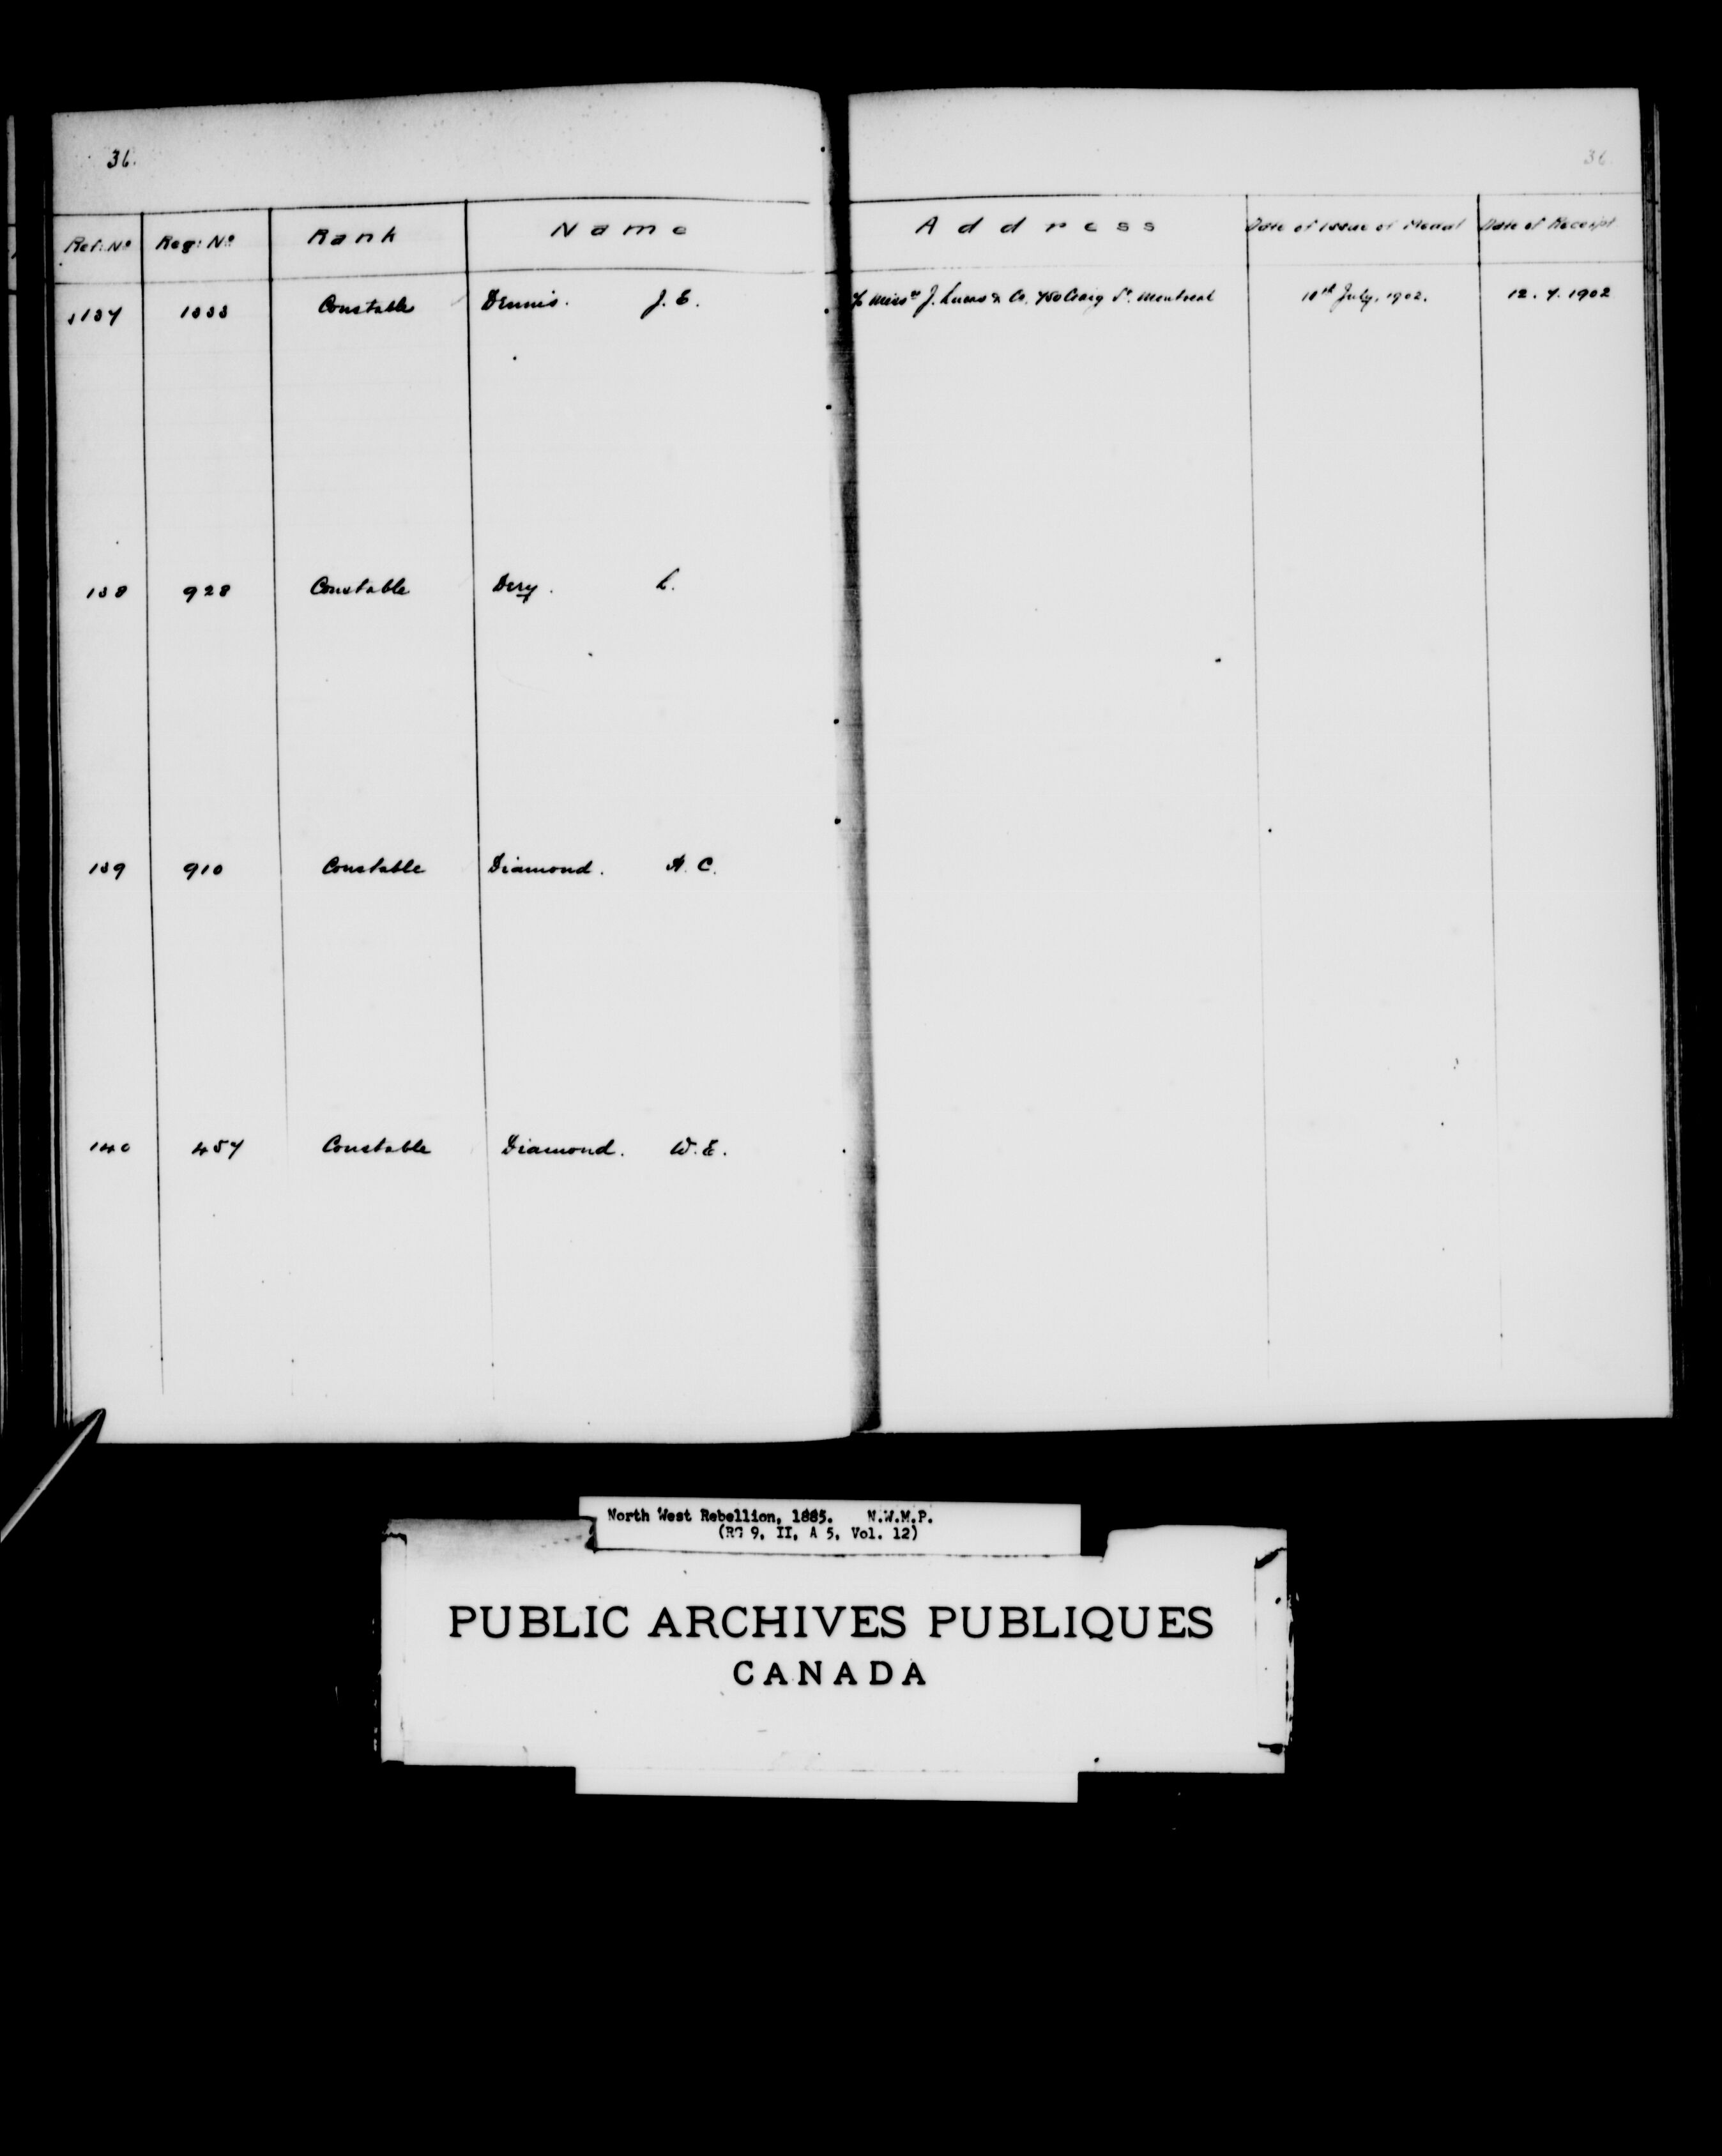 36.
36.
Ref: No Reg: No Rank Name Address Date of issue of Medal Date of Receipt
137 1033 Constable Dennis. J. E. c/o Miss J. Lucas & Co. 780 Craig St. Montreal 10th July, 1902. 12. 7. 1902
138 928 Constable Dery. L.
139 910 Constable Diamond. A. C.
140 457 Constable Diamond. W. E.
North West Rebellion, 1885. N.W.M.P.
(RG 9, II, A 5, Vol. 12)
PUBLIC ARCHIVES PUBLIQUES
CANADA